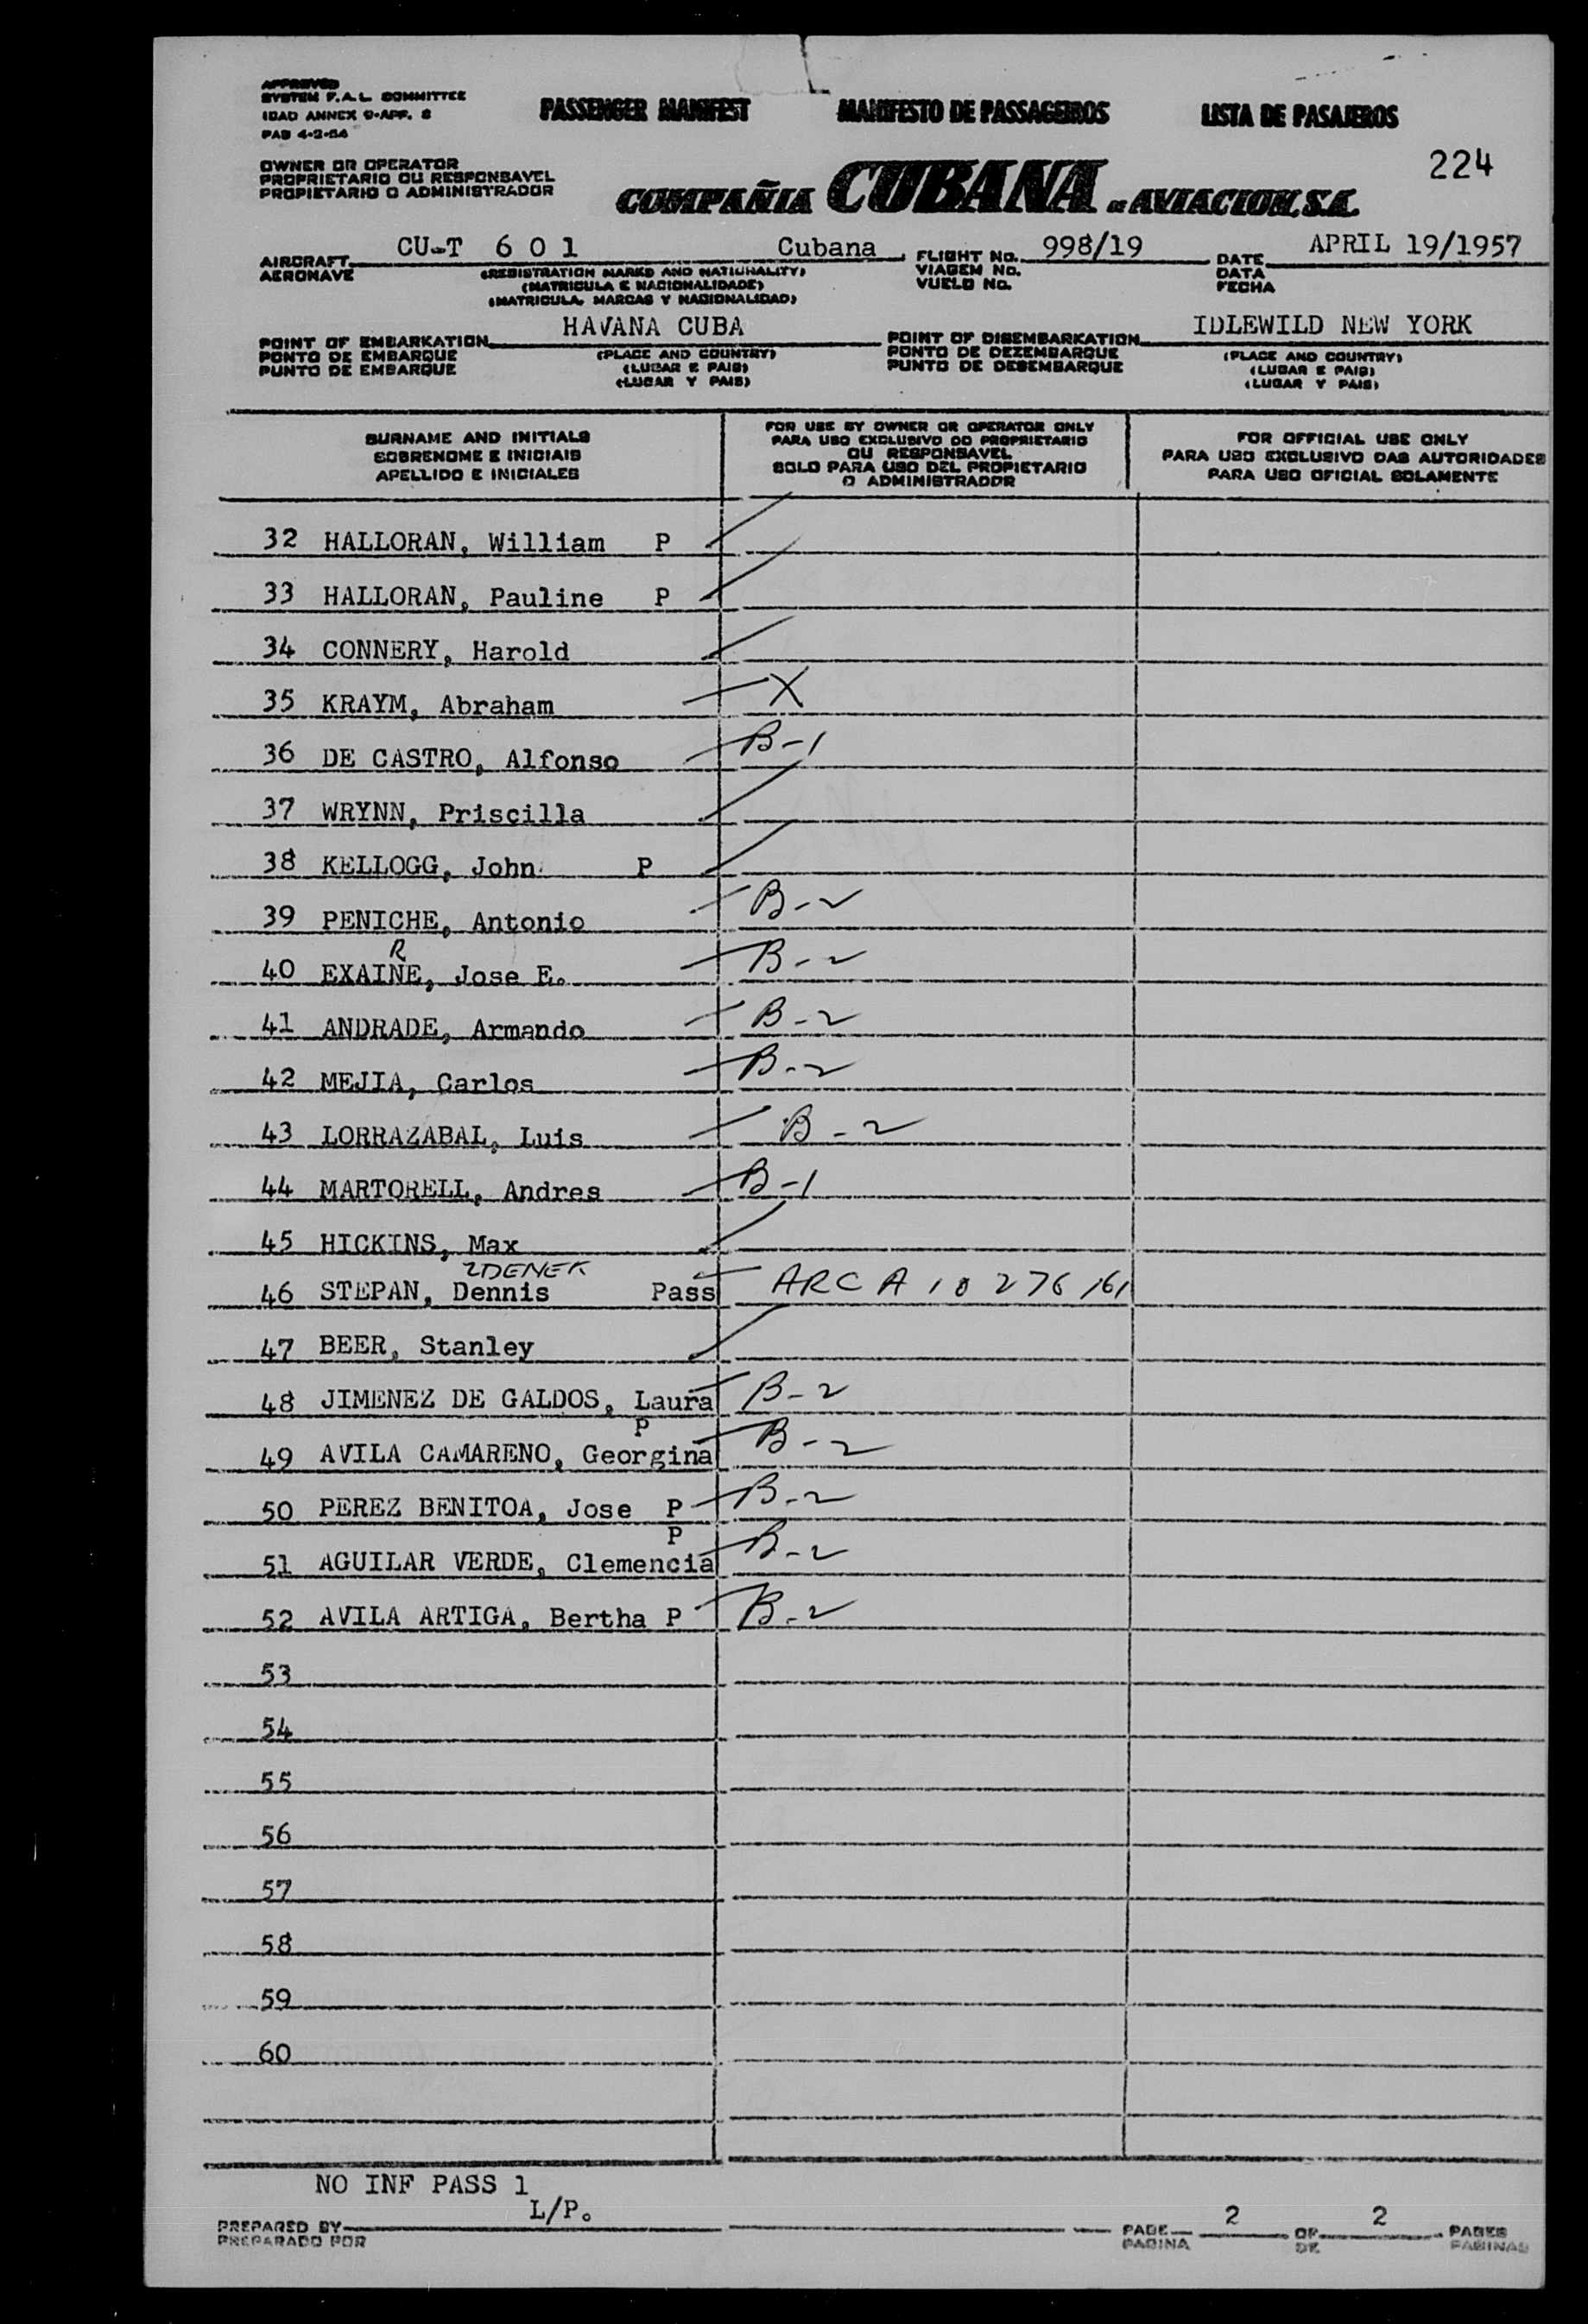 APPROVED
SYSTEM F.A.L. COMMITTEE
ICAO ANNEX 9-APP. 2
PAB 4-2-54
PASSENGER MANIFEST MANIFESTO DE PASSAGEIROS LISTA DE PASAJEROS
224
OWNER OR OPERATOR
PROPRIETARIO OU RESPONSAVEL
PROPIETARIO O ADMINISTRADOR
COMPAÑIA CUBANA DE AVIACION, S.A.
AIRCRAFT CU-T 6 0 1 Cubana FLIGHT No. 998/19 DATE APRIL 19/1957
AERONAVE (REGISTRATION MARKS AND NATIONALITY) VIAGEM No. DATA
(MATRICULA E NACIONALIDADE) VUELO No. FECHA
(MATRICULA, MARCAS Y NACIONALIDAD)
POINT OF EMBARKATION HAVANA CUBA POINT OF DISEMBARKATION IDLEWILD NEW YORK
PONTO DE EMBARQUE (PLACE AND COUNTRY) PONTO DE DEZEMBARQUE (PLACE AND COUNTRY)
PUNTO DE EMBARQUE (LUGAR E PAIS) PUNTO DE DESEMBARQUE (LUGAR E PAIS)
(LUGAR Y PAIS) (LUGAR Y PAIS)
SURNAME AND INITIALS
SOBRENOME E INICIAIS
APELLIDO E INICIALES
FOR USE BY OWNER OR OPERATOR ONLY
PARA USO EXCLUSIVO DO PROPRIETARIO
OU RESPONSAVEL
SOLO PARA USO DEL PROPIETARIO
O ADMINISTRADOR
FOR OFFICIAL USE ONLY
PARA USO EXCLUSIVO DAS AUTORIDADES
PARA USO OFICIAL SOLAMENTE
32 HALLORAN, William P
33 HALLORAN, Pauline P
34 CONNERY, Harold
35 KRAYM, Abraham X
36 DE CASTRO, Alfonso B-1
37 WRYNN, Priscilla
38 KELLOGG, John P
39 PENICHE, Antonio B-2
R
40 EXAINE, Jose E. B-2
41 ANDRADE, Armando B-2
42 MEJIA, Carlos B-2
43 LORRAZABAL, Luis B-2
44 MARTORELL, Andres B-1
45 HICKINS, Max
ZDENEK
46 STEPAN, Dennis Pass ARC A 10 276 161
47 BEER, Stanley
48 JIMENEZ DE GALDOS, Laura B-2
P
49 AVILA CAMARENO, Georgina B-2
50 PEREZ BENITOA, Jose P B-2
P
51 AGUILAR VERDE, Clemencia B-2
52 AVILA ARTIGA, Bertha P B-2
53
54
55
56
57
58
59
60
NO INF PASS 1
L/P.
PREPARED BY PAGE 2 OF 2 PAGES
PREPARADO POR PAGINA DE PAGINAS